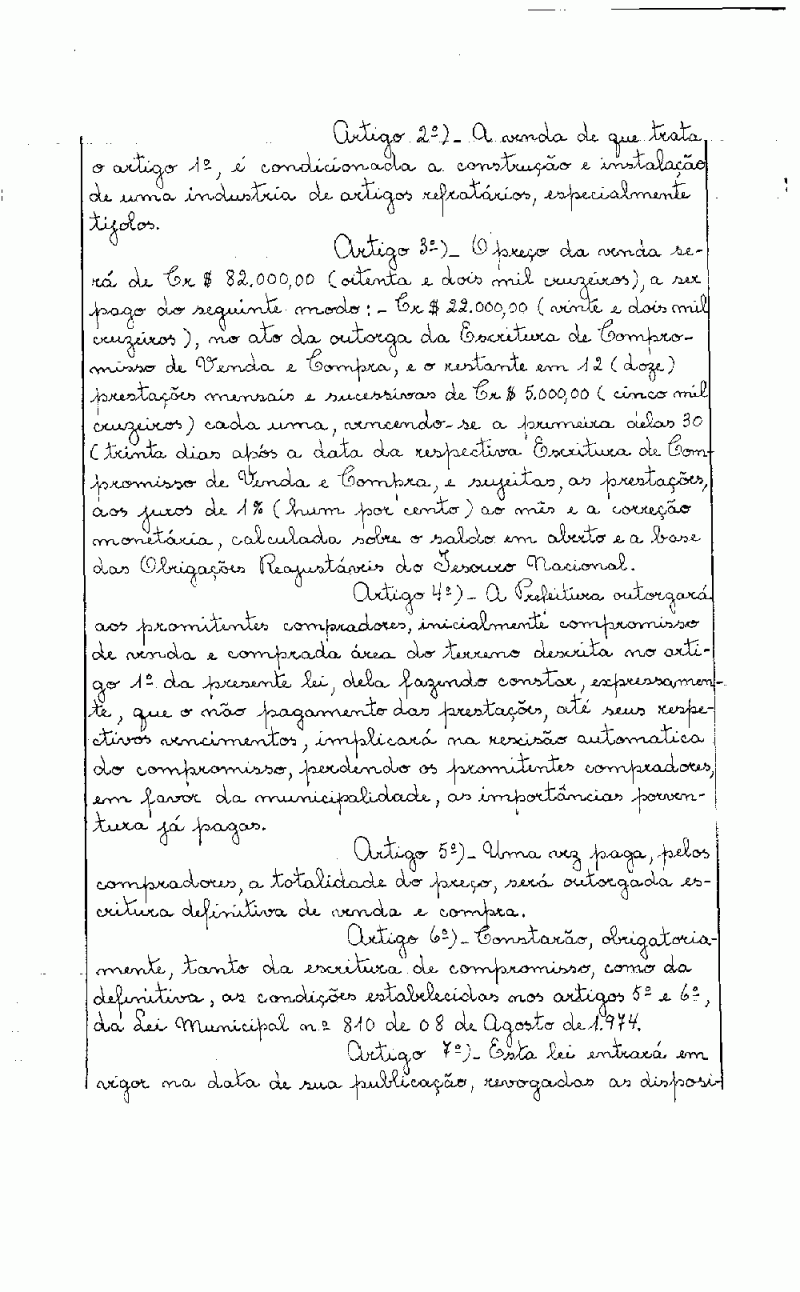 Artigo 2º)_ A venda de que trata
o artigo 1º, é condicionada a construção e instalação
de uma industria de artigos refratários, especialmente
tijolos.
Artigo 3º)_ O preço da venda se-
rá de Cr$ 82.000,00 (oitenta e dois mil cruzeiros), a ser
pago do seguinte modo: - Cr$ 22.000,00 (vinte e dois mil
cruzeiros), no ato da outorga da Escritura de Compro-
misso de Venda e Compra, e o restante em 12 (doze)
prestações mensais e sucessivas de Cr$ 5.000,00 (cinco mil
cruzeiros) cada uma, vencendo-se a primeira delas 30
(trinta dias após a data da respectiva Escritura de Com-
promisso de Venda e Compra, e sujeitas, as prestações,
aos juros de 1% (hum por cento) ao mês e a correção
monetária, calculada sobre o saldo em aberto e a base
das Obrigações Reajustáveis do Tesouro Nacional.
Artigo 4º)_ A Prefeitura outorgará
aos promitentes compradores, inicialmente compromisso
de venda e comprada área do terreno descrita no arti-
go 1º da presente lei, dela fazendo constar, expressamen-
te, que o não pagamento das prestações, até seus respe-
ctivos vencimentos, implicará na rescisão automatica
do compromisso, perdendo os promitentes compradores,
em favor da municipalidade, as importâncias porven-
tura já pagas.
Artigo 5º)_ Uma vez paga, pelos
compradores, a totalidade do preço, será outorgada es-
critura definitiva de venda e compra.
Artigo 6º)_ Constarão, obrigatoria-
mente, tanto da escritura de compromisso, como da
definitiva, as condições estabelecidas nos artigos 5º e 6º,
da Lei Municipal nº 810 de 08 de Agosto de 1.974.
Artigo 7º)_ Esta lei entrará em
vigor na data de sua publicação, revogadas as disposi-